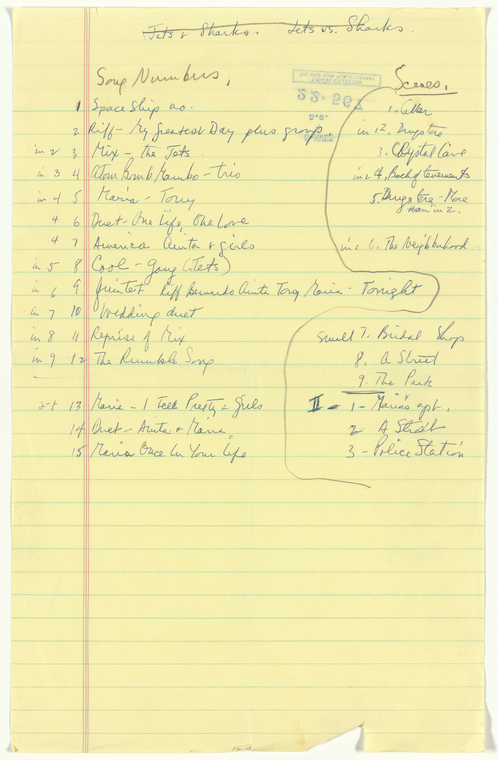 Jets & Sharks. Jets vs. Sharks.
Song Numbers.
1 Space Ship no.
2 Riff - My Greatest Day plus group
in 2 3 Mix - the Jets
in 3 4 Atom Bomb Mambo - trio
in 4 5 Maria - Tony
4 6 Duet - One Life, One Love
4 7 America Anita & girls
in 5 8 Cool - Gang (Jets)
in 6 9 Quintet Riff Bernardo Anita Tony Maria - Tonight
in 7 10 Wedding duet
in 8 11 Reprise of Mix
in 9 12 The Rumble Song
13 Maria - I Feel Pretty & Girls
14 Duet - Anita & Maria
15 Maria Once In Your Life
Scenes.
1. Cellar
in 1 2. Drugstore
3. Crystal Cave
in 2 4. Back of tenements
5. Drugstore - More
than in 2.
in 1 6. The Neighborhood
small 7. Bridal Shop
8. A Street
9. The Park
II - 1 - Maria's apt.
2 - A Street
3 - Police Station